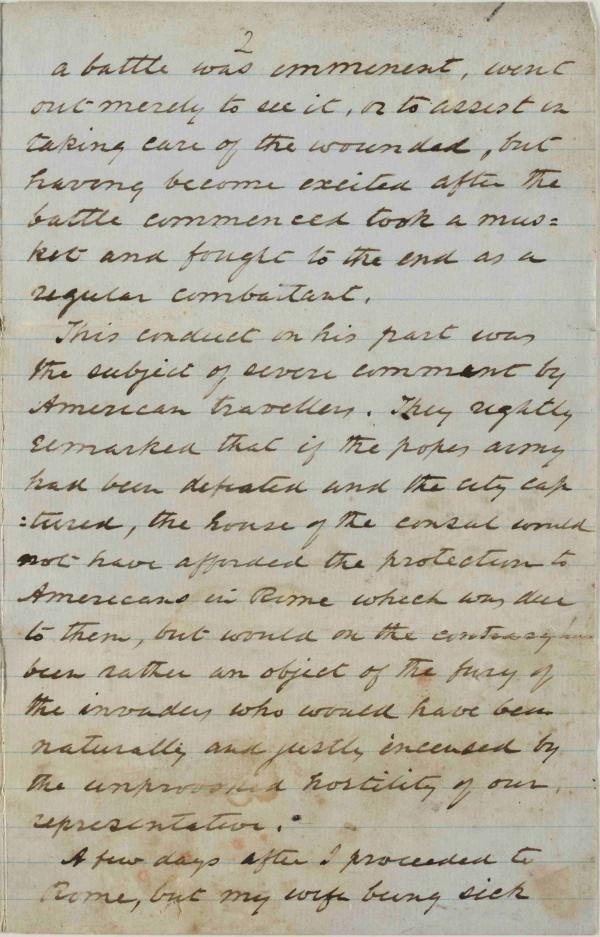 2
a battle was imminent, went
out merely to see it, or to assist in
taking care of the wounded, but
having become excited after the
battle commenced took a mus=
ket and fought to the end as a
regular combattant.
This conduct on his part was
the subject of severe comment by
American travellers. They rightly
remarked that if the popes army
had been defeated and the city cap
=tured, the house of the consul would
not have afforded the protection to
Americans in Rome which was due
to them, but would on the contrary have
been rather an object of the fury of
the invaders who would have been
naturally and justly incensed by
the unprovoked hostility of our
representative.
A few days after I proceeded to
Rome, but my wife being sick